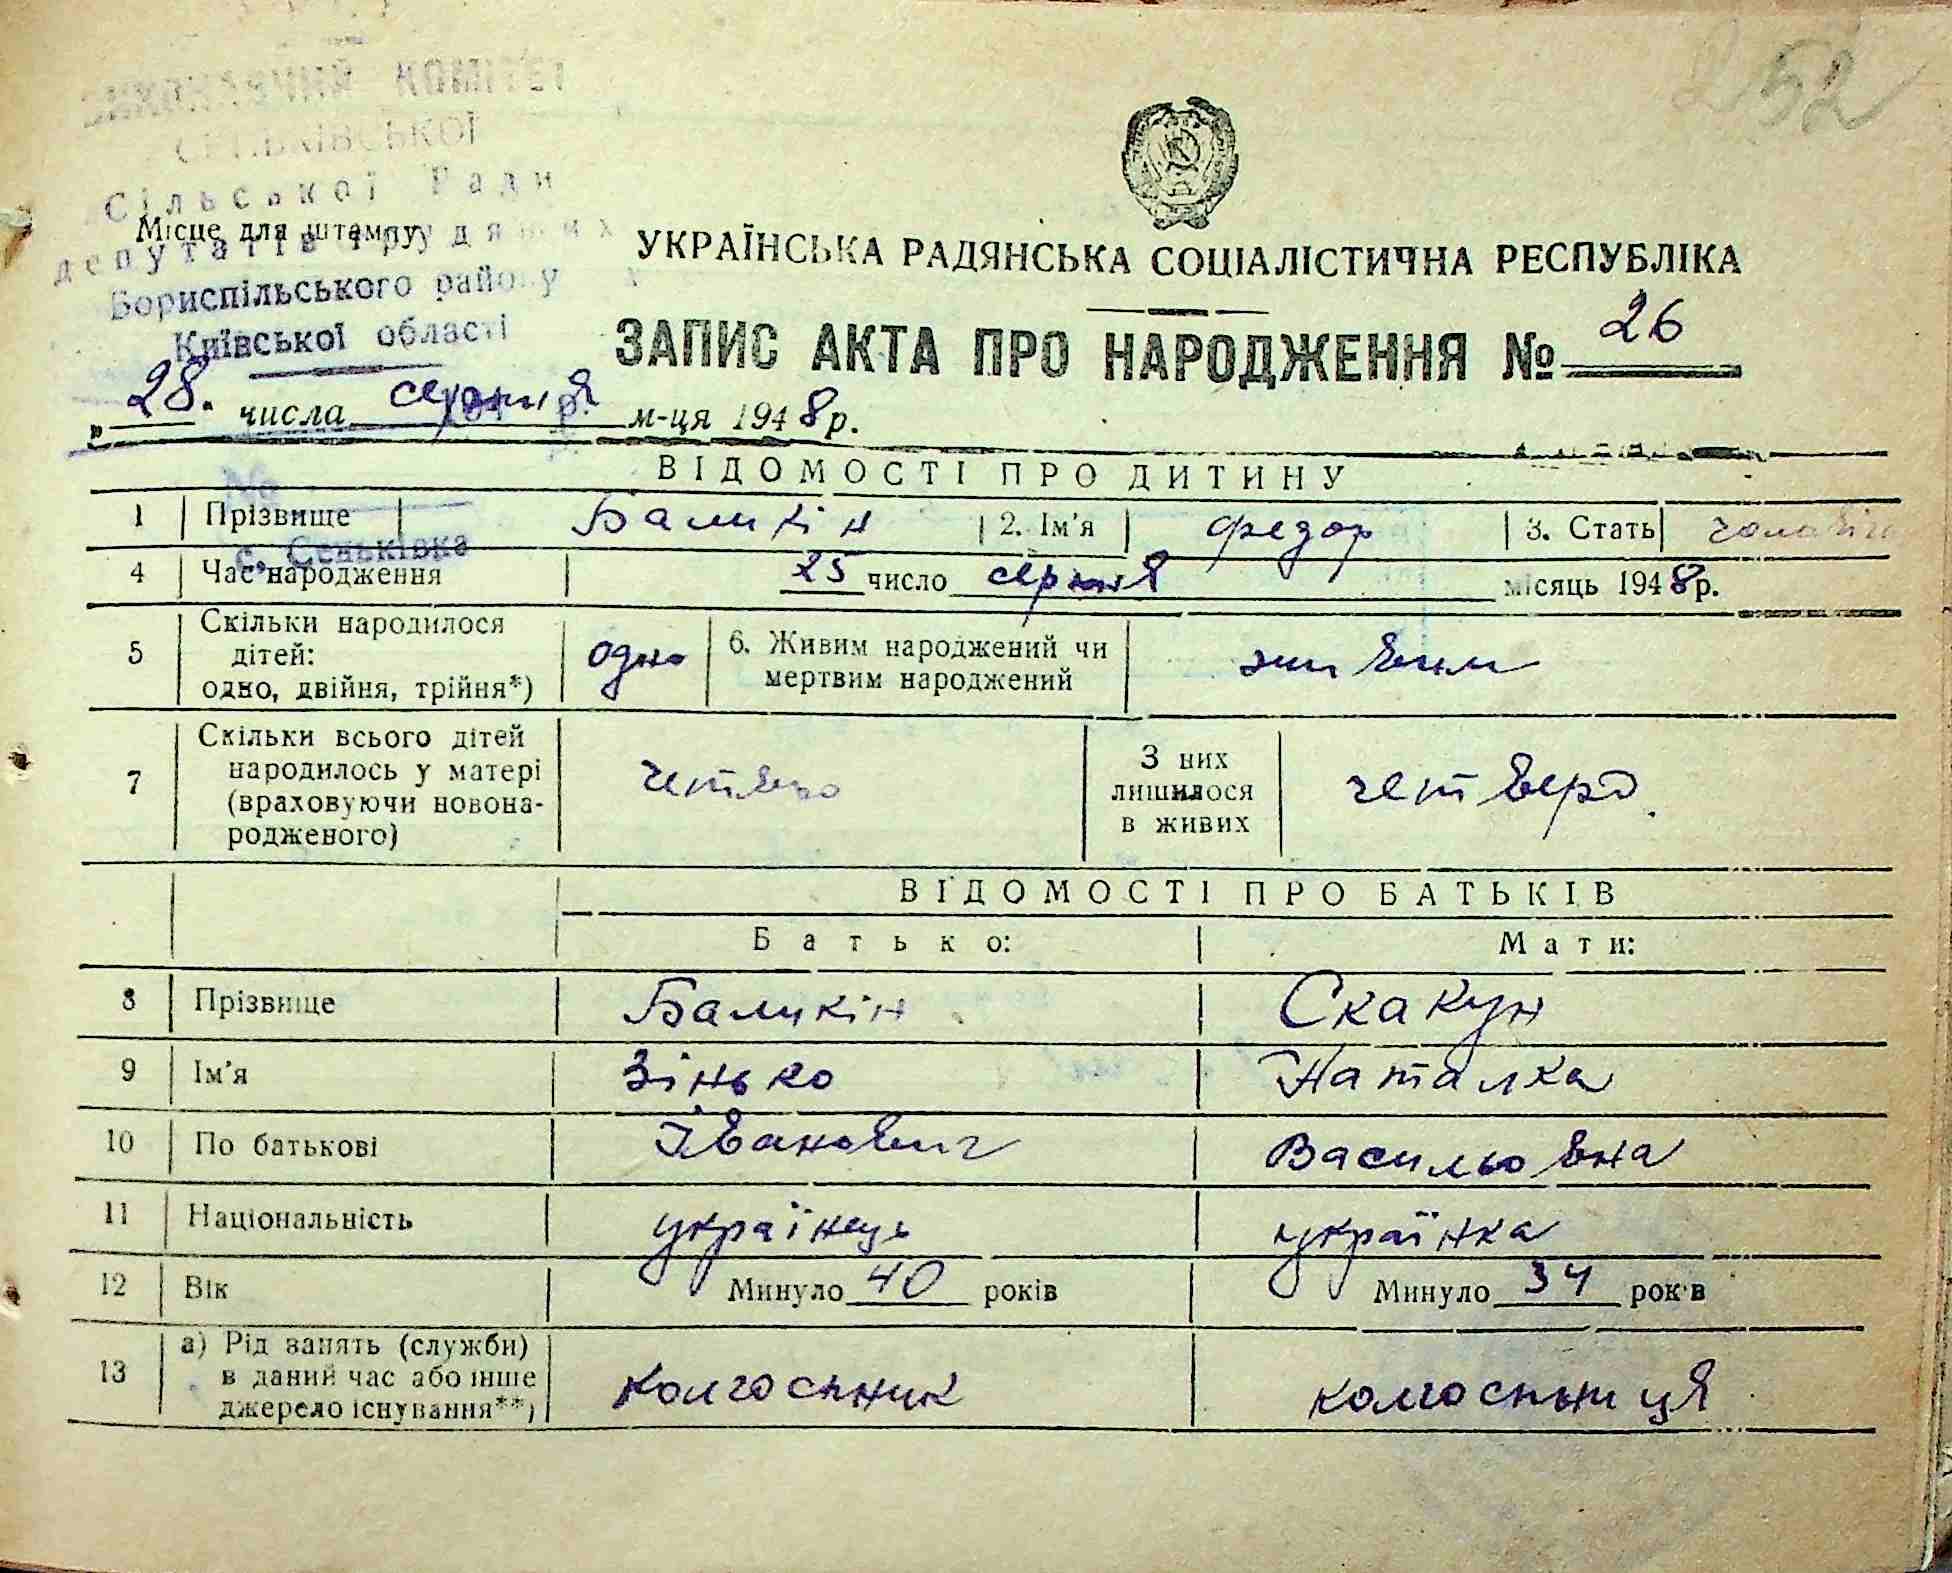 252
ВИКОНАВЧИЙ КОМІТЕТ
СЕНЬКІВСЬКОЇ
Сільської Ради
депутатів трудящих
Бориспільського району
Київської області
Місце для штампу
УКРАЇНСЬКА РАДЯНСЬКА СОЦІАЛІСТИЧНА РЕСПУБЛІКА
ЗАПИС АКТА ПРО НАРОДЖЕННЯ № 26
„ 28. числа серпня м-ця 1948 р.
№
с. Сеньківка
ВІДОМОСТІ ПРО ДИТИНУ
1 Прізвище Баликін 2. Ім'я Федор 3. Стать чоловіч
4 Час народження 25 число серпня місяць 1948 р.
5 Скільки народилося дітей: одно, двійня, трійня*) одно 6. Живим народжений чи мертвим народжений живим
7 Скільки всього дітей народилось у матері (враховуючи новона-родженого) четверо З них лишилося в живих четверо
ВІДОМОСТІ ПРО БАТЬКІВ
Батько: Мати:
8 Прізвище Баликін Скакун
9 Ім'я Зінько Наталка
10 По батькові Іванович Васильовна
11 Національність українець українка
12 Вік Минуло 40 років Минуло 34 років
13 а) Рід занять (служби) в даний час або інше джерело існування**) колгоспник колгоспниця